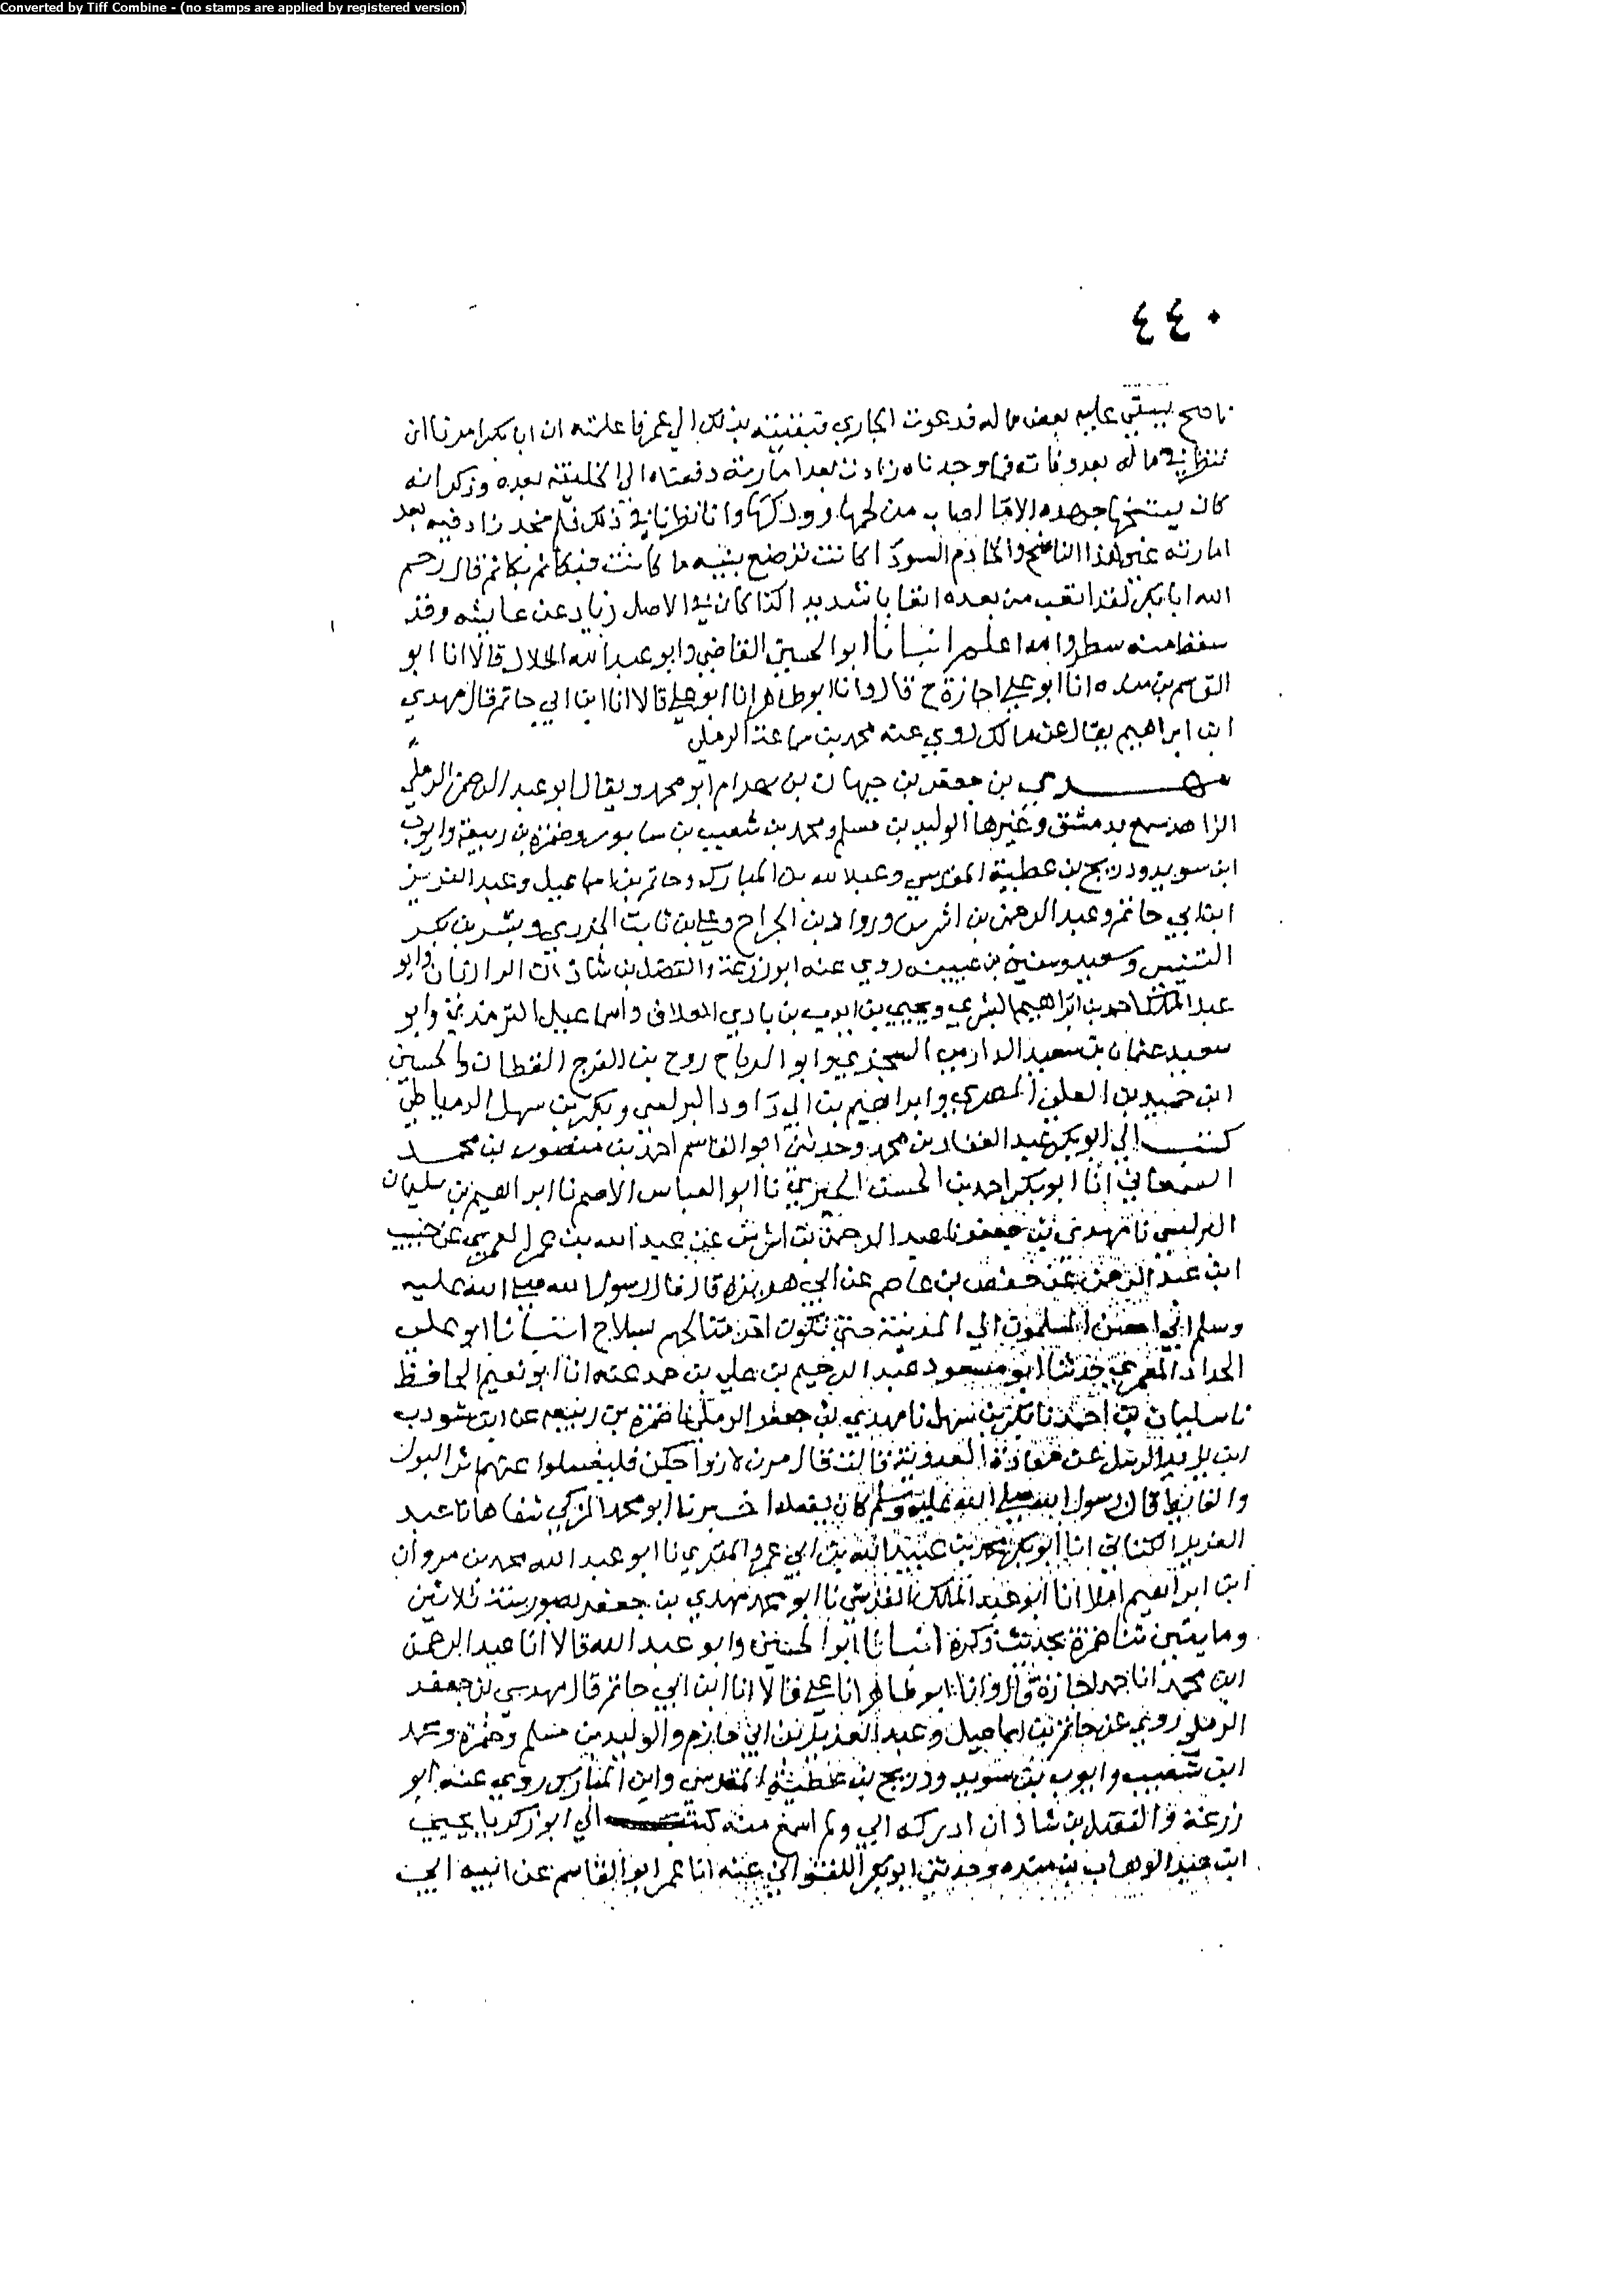 Converted by Tiff Combine - (no stamps are applied by registered version)
٤٤٠
ناضح يستقي عليه بعض ماله قد بذلك الي عمر فاعلمته ان ابا بكر امرنا ان
ننظر في ماله بعد وفاته فما وجدناه زاد بعد امارته دفعناه الى الخليفة بعده وذكر انه
كان جهده الا ما اصاب من لحمها وودكها وانا نظرنا في ذلك فلم نجد زاد فيه بعد
امارته غير هذا الناضح والخادم السودا كانت ترضع بنيه ما كانت قال رحم
الله ابا بكر لقد اتعب من بعده اتعابا شديدا كذا كان في الاصل زياد عن عايشه وقد
سقط منه سطر والله اعلم انبانا ابو الحسين القاضي وابو عبد الله الخلال قالا انا ابو
القاسم بن منده انا ابو علي اجازة ح قال وانا ابو طاهر انا ابو علي قالا انا ابن ابي حاتم قال مهدي
ابن ابراهيم عن مالك روي عنه محمد بن سماعة الرملي
مهدي بن جعفر بن جيهان بن بهرام ابو محمد ويقال ابو عبد الرحمن الرملي
الزاهد سمع بدمشق وغيرها الوليد بن مسلم ومحمد بن شعيب بن سابور وضمرة بن ربيعة وايوب
ابن سويد ودريج بن عطية المقدسي وعبد الله بن المبارك وحاتم بن اسماعيل وعبد العزيز
ابن ابي حاتم وعبد الرحمن بن اشرس ورواد بن الجراح وعلي بن ثابت الجزري وبشر بن بكر
التنيسي وسعيد وسفين بن عيينه روي عنه ابو زرعة والفضل بن شاذان الرازيان وابو
عبد الملك احمد بن ابراهيم البسري ويحيي بن ايوب بن بادي العلاف واسماعيل الترمذي وابو
سعيد عثمان بن سعيد الدارمي السجزي وابو الرباح روح بن الفرج القطان والحسين
ابن حميد بن العلي المصري وابراهيم بن ابي داود البرلسي وبكر بن سهل الدمياطي
كتب الي ابو بكر عبد الغفار بن محمد وحدثني ابو القاسم احمد بن منصور بن محمد
السمعاني انا ابو بكر احمد بن الحسن الحيري نا ابو العباس الاصم نا ابراهيم بن سليمان
البرلسي نا مهدي بن جعفر نا عبد الرحمن بن اشرس عن عبد الله بن عمر العمري عن خبيب
ابن عبد الرحمن عن حفص بن عاصم عن ابي هريرة قال قال رسول الله صلي الله عليه
وسلم المسلمون الي المدينة حتي تكون سلاح انبانا ابو علي
الحداد المقري حدثنا ابو مسعود عبد الرحيم بن علي بن حمد عنه انا ابو نعيم الحافظ
نا سليمان بن احمد نا بكر بن سهل نا مهدي بن جعفر الرملي نا ضمرة بن ربيعه عن ابن شوذب
عن معاذة العدوية قالت قال مرن ازواجكن فليغسلوا عنهم اثر البول
والغايط فان رسول الله صلي الله عليه وسلم كان يفعله اخبرنا ابو محمد المزكي شفاها نا عبد
العزيز الكتاني انا ابو بكر محمد بن عبيد الله بن ابي عمرو المقري نا ابو عبد الله محمد بن مروان
ابن ابراهيم املا انا ابو عبد الملك القرشي نا ابو محمد مهدي بن جعفر بصور سنة ثلاثين
ومايتين نا ضمرة بحديث ذكره انبانا ابو الحسين وابو عبد الله قالا انا عبد الرحمن
ابن محمد انا حمد اجازة قال وانا ابو طاهر انا علي قالا انا ابن ابي حاتم قال مهدي بن جعفر
الرملي روي عن حاتم بن اسماعيل وعبد العزيز بن ابي حازم والوليد بن مسلم وضمرة ومحمد
ابن شعيب وايوب بن سويد ودريج بن عطية المقدسي وابن المبارك روي عنه ابو
زرعة والفضل بن شاذان ادركه ابي ولم اسمع منه كتب الي ابو زكريا يحيي
ابن عبد الوهاب بن منده وحدثني ابو بكر اللفتواني عنه انا عمر ابو القاسم عن ابيه ابي